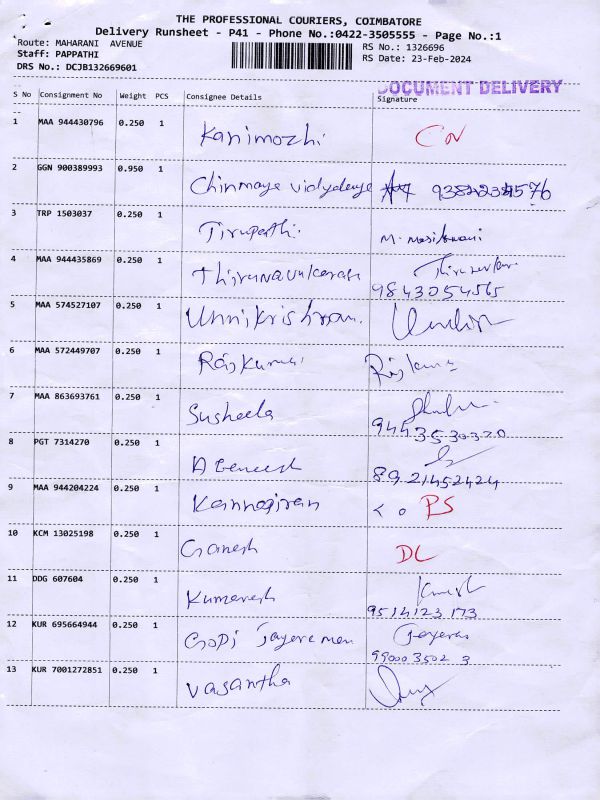 THE PROFESSIONAL COURIERS, COIMBATORE
Delivery Runsheet - P41 - Phone No.:0422-3505555 - Page No.:1
Route: MAHARANI AVENUE
RS No.: 1326696
Staff: PAPPATHI
RS Date: 23-Feb-2024
DRS No.: DCJB132669601
DOCUMENT DELIVERY
S No Consignment No Weight PCS Consignee Details Signature
1 MAA 944430796 0.250 1 Kanimozhi CN
2 GGN 900389993 0.950 1 Chinmaye vidyaleye
3 TRP 1503037 0.250 1 Tirupathi.
4 MAA 944435869 0.250 1 Thirunavukarasu
9843054565
5 MAA 574527107 0.250 1 Unnikrishnan.
6 MAA 572449707 0.250 1 Rajkumar
7 MAA 863693761 0.250 1 Susheela
9443530320
8 PGT 7314270 0.250 1
8921452424
9 MAA 944204224 0.250 1 PS
10 KCM 13025198 0.250 1 Ganesh DL
11 DDG 607604 0.250 1 Kumaresh
9514123173
12 KUR 695664944 0.250 1 Gopi Jayaraman
13 KUR 7001272851 0.250 1 Vasantha